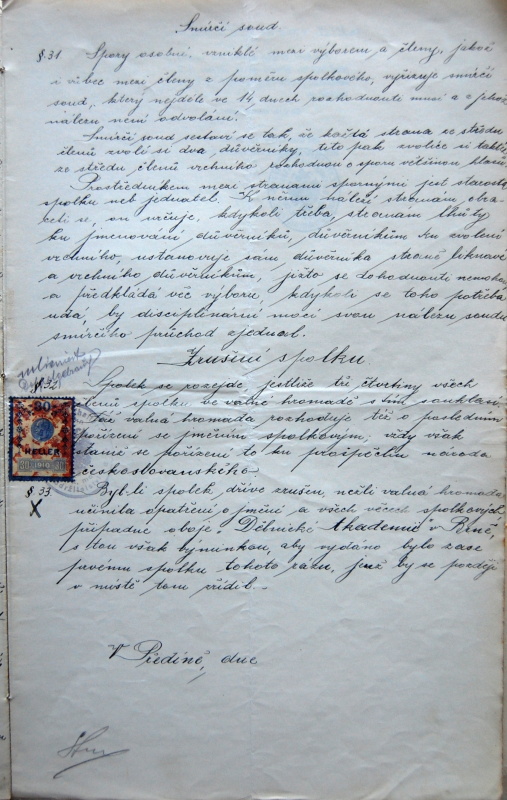 Smírčí soud.
§ 31. Spory osobní, vzniklé mezi výborem a členy, jakož
i vůbec mezi členy z poměru spolkového, vyřizuje smírčí
soud, který nejdéle ve 14 dnech rozhodnouti musí a z jehož
nálezu není odvolání.
Smírčí soud sestaví se tak, že každá strana ze středu
členů zvolí si dva důvěrníky, tito pak zvolíce si taktéž
ze středu členů vrchního rozhodnou o sporu většinou hlasů
Prostředníkem mezi stranami spornými jest starosta
spolku neb jednatel. K němu náleží stranám obra-
ceti se, on určuje, kdykoli třeba, stranám lhůty
ku jmenování důvěrníků, důvěrníkům ku zvolení
vrchního, ustanovuje sám důvěrníka straně liknavé
a vrchního důvěrníkům, jižto se dohodnouti nemohou
a předkládá věc výboru, kdykoli se toho potřeba
udá, by disciplinární mocí svou nálezu soudu
smírčího průchod zjednal.
Zrušení spolku.
§ 32. Spolek se rozejde, jestliže tři čtvrtiny všech
členů spolku ve valné hromadě s tím souhlasí
Též valná hromada rozhoduje též o posledním
pořízení se jměním spolkovým; vždy však
staniž se pořízení to ku prospěchu národa
československého.
§ 33. Byl-li spolek dříve zrušen, nežli valná hromada
X učinila opatření o jmění a všech věcech spolkových
připadne oboje „Dělnické Akademii" v Brně,
s tou však výmínkou, aby vydáno bylo zase
prvému spolku tohoto rázu, jenž by se později
v místě tom zřídil.
30
HELLER
30 1910 30
V Předíně, dne